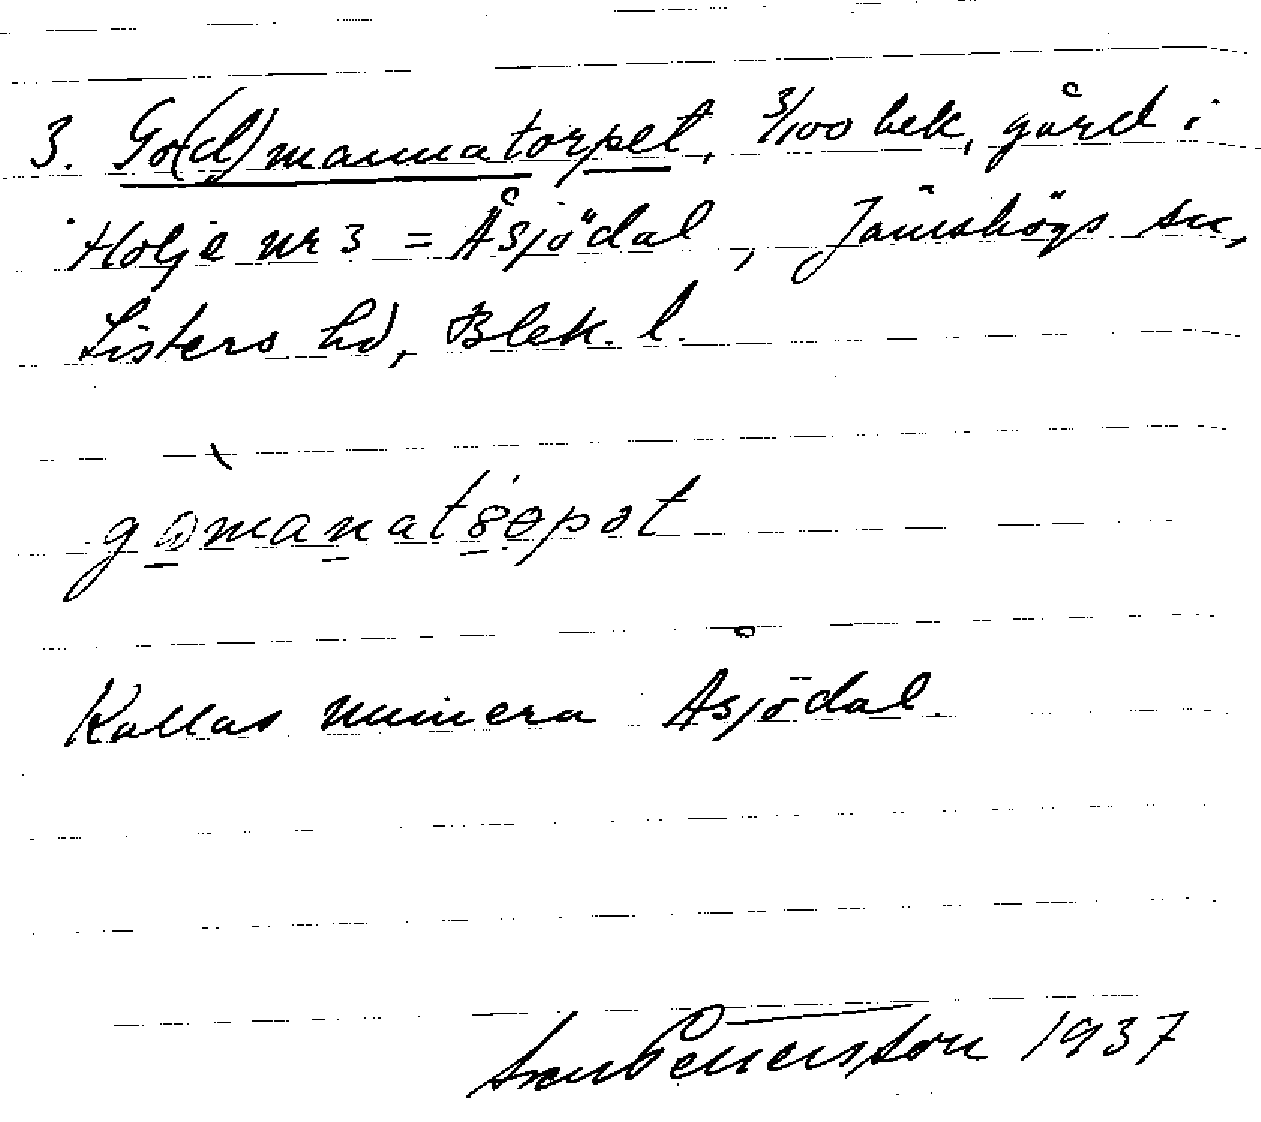 3. Go(d)mannatorpet, 3/100 bek, gård i
Holje nr 3 = Åsjödal, Jämshögs sn,
Listers hd, Blek. l.
Kallas numera Åsjödal.
Sven Pettersson 1937